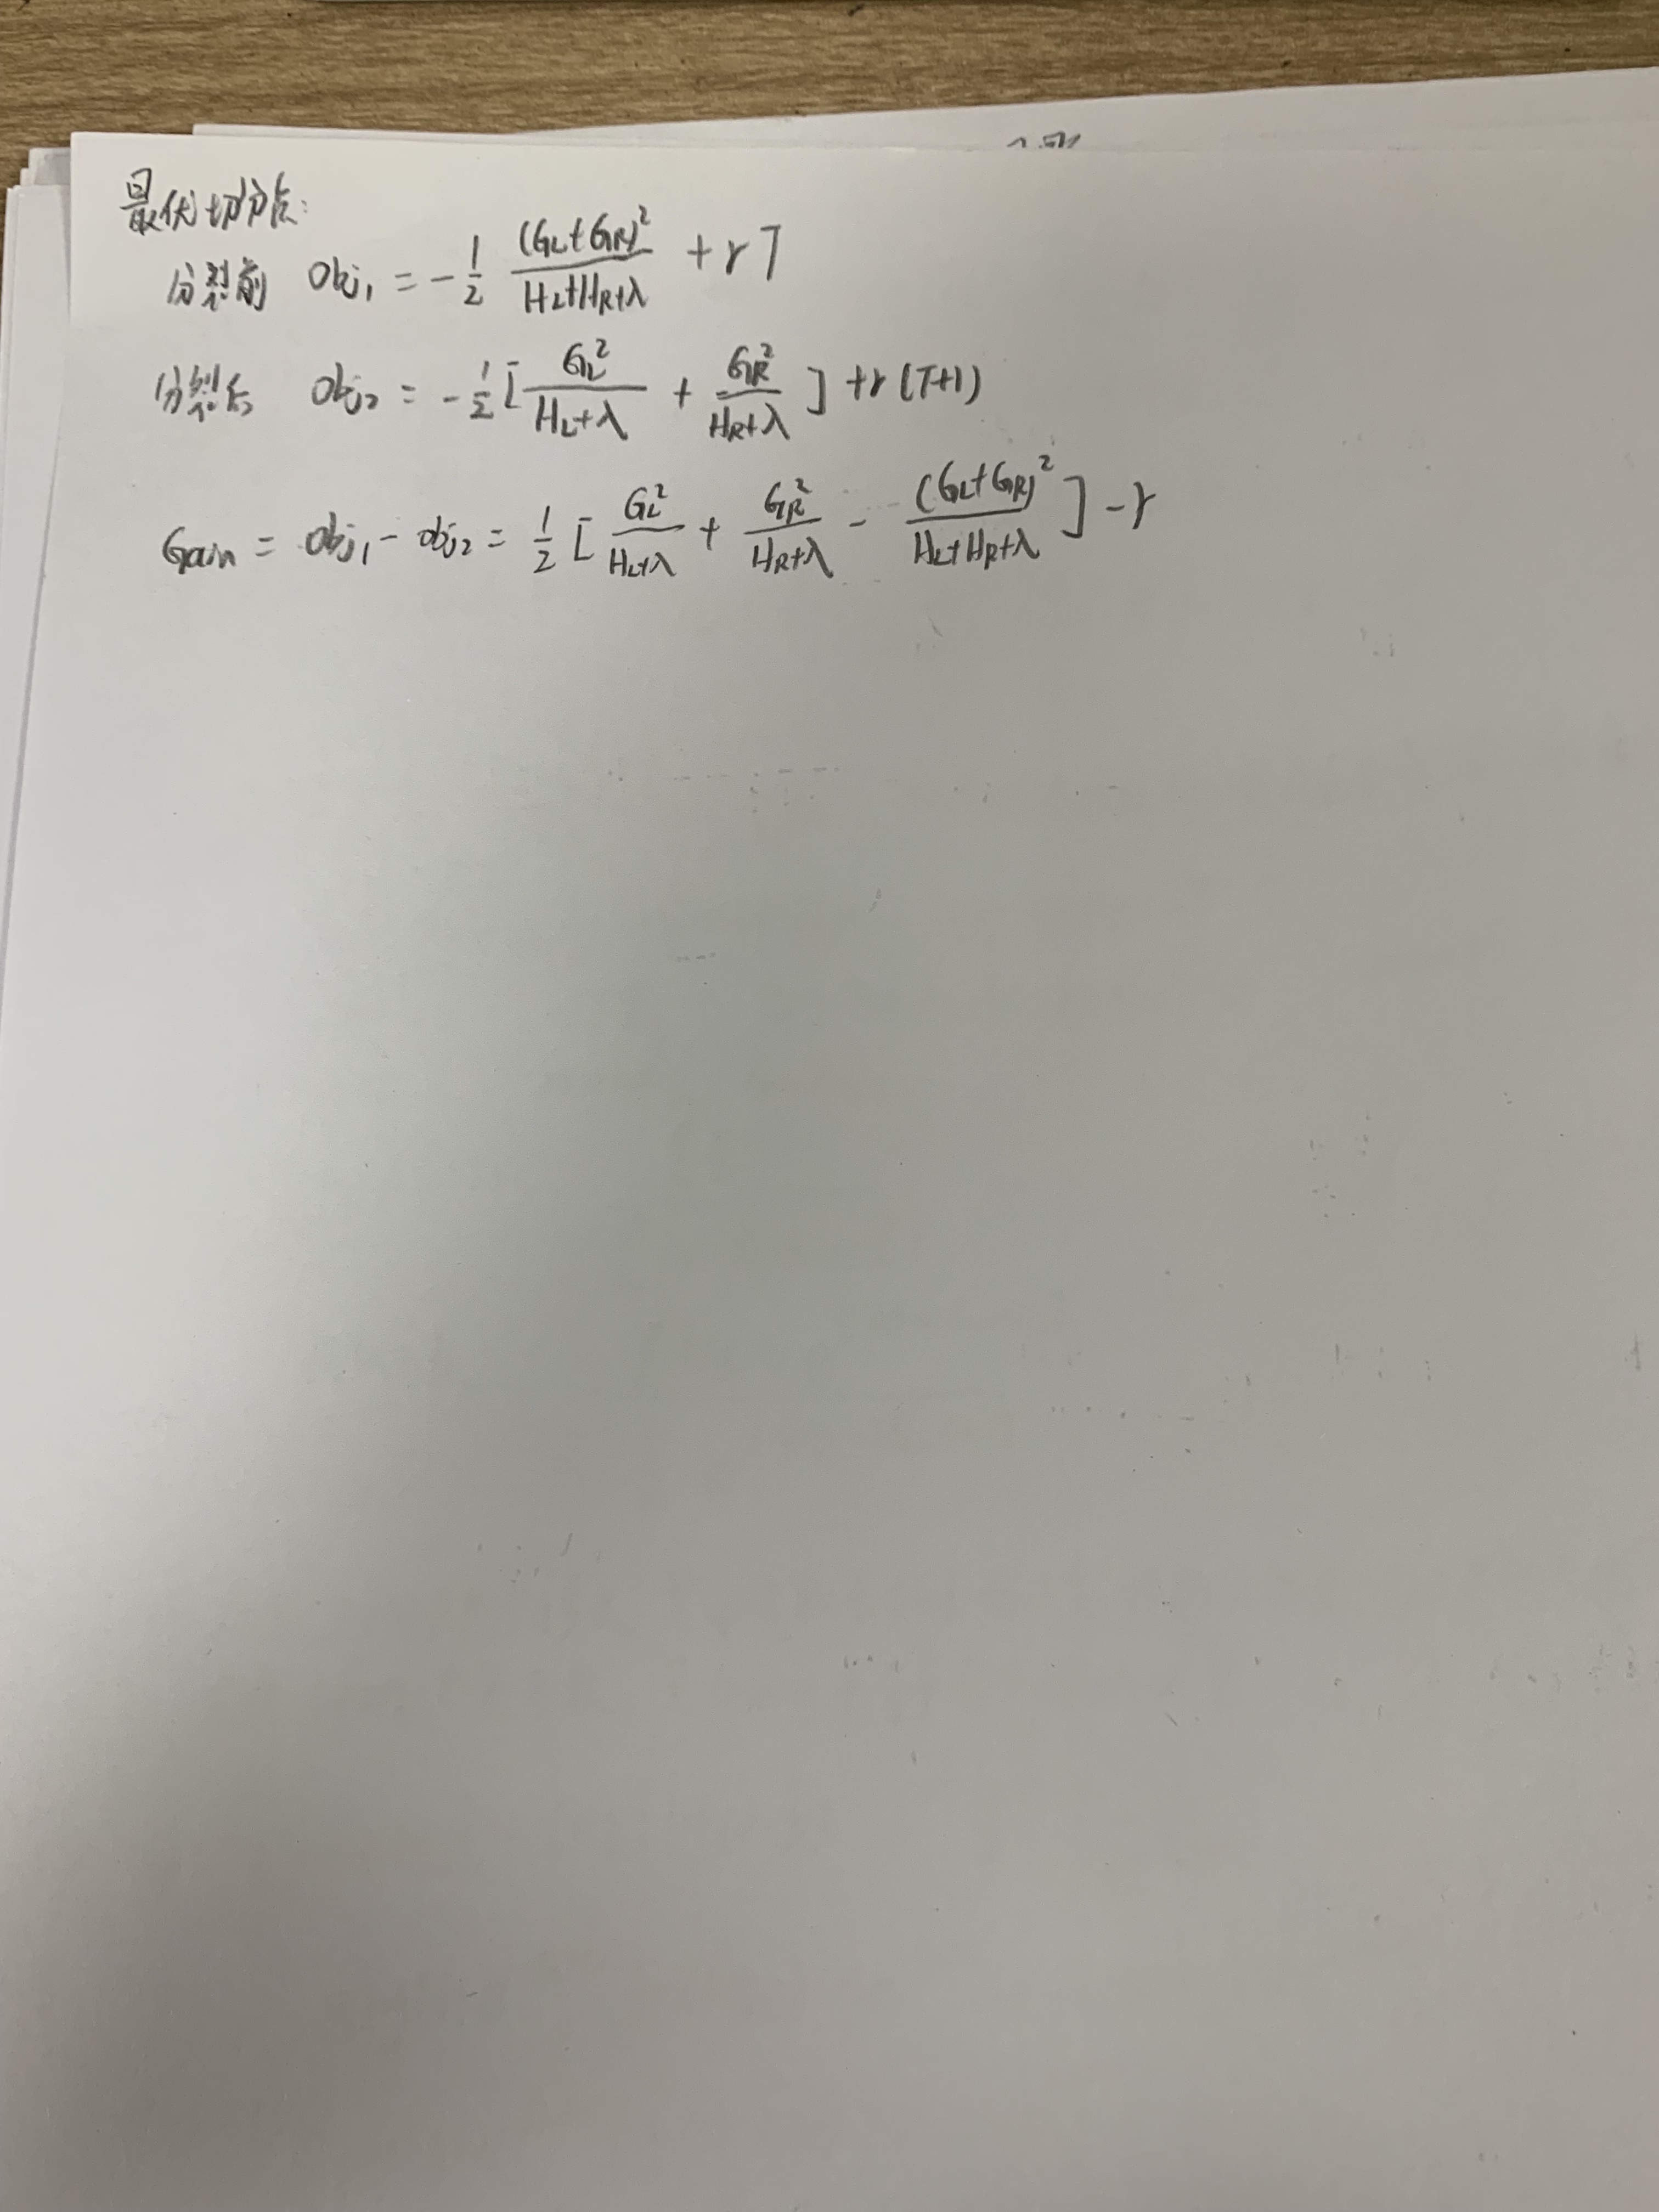 最优切分点:
分裂前 Obj₁ = -1/2 (G_L+G_R)²/(H_L+H_R+λ) + γT
分裂后 Obj₂ = -1/2 [G_L²/(H_L+λ) + G_R²/(H_R+λ)] + γ(T+1)
Gain = obj₁ - obj₂ = 1/2 [G_L²/(H_L+λ) + G_R²/(H_R+λ) - (G_L+G_R)²/(H_L+H_R+λ)] - γ